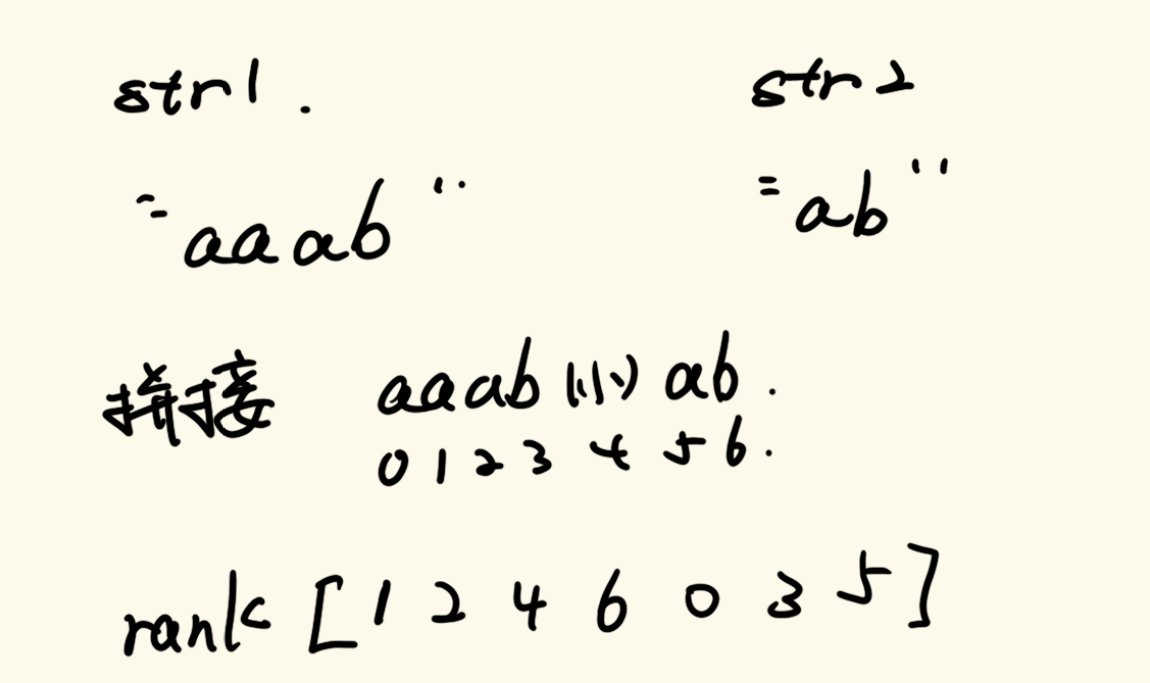 str1. str2
=aaab" =ab"
拼接 aaab(1) ab.
0 1 2 3 4 5 6.
rank [1 2 4 6 0 3 5]